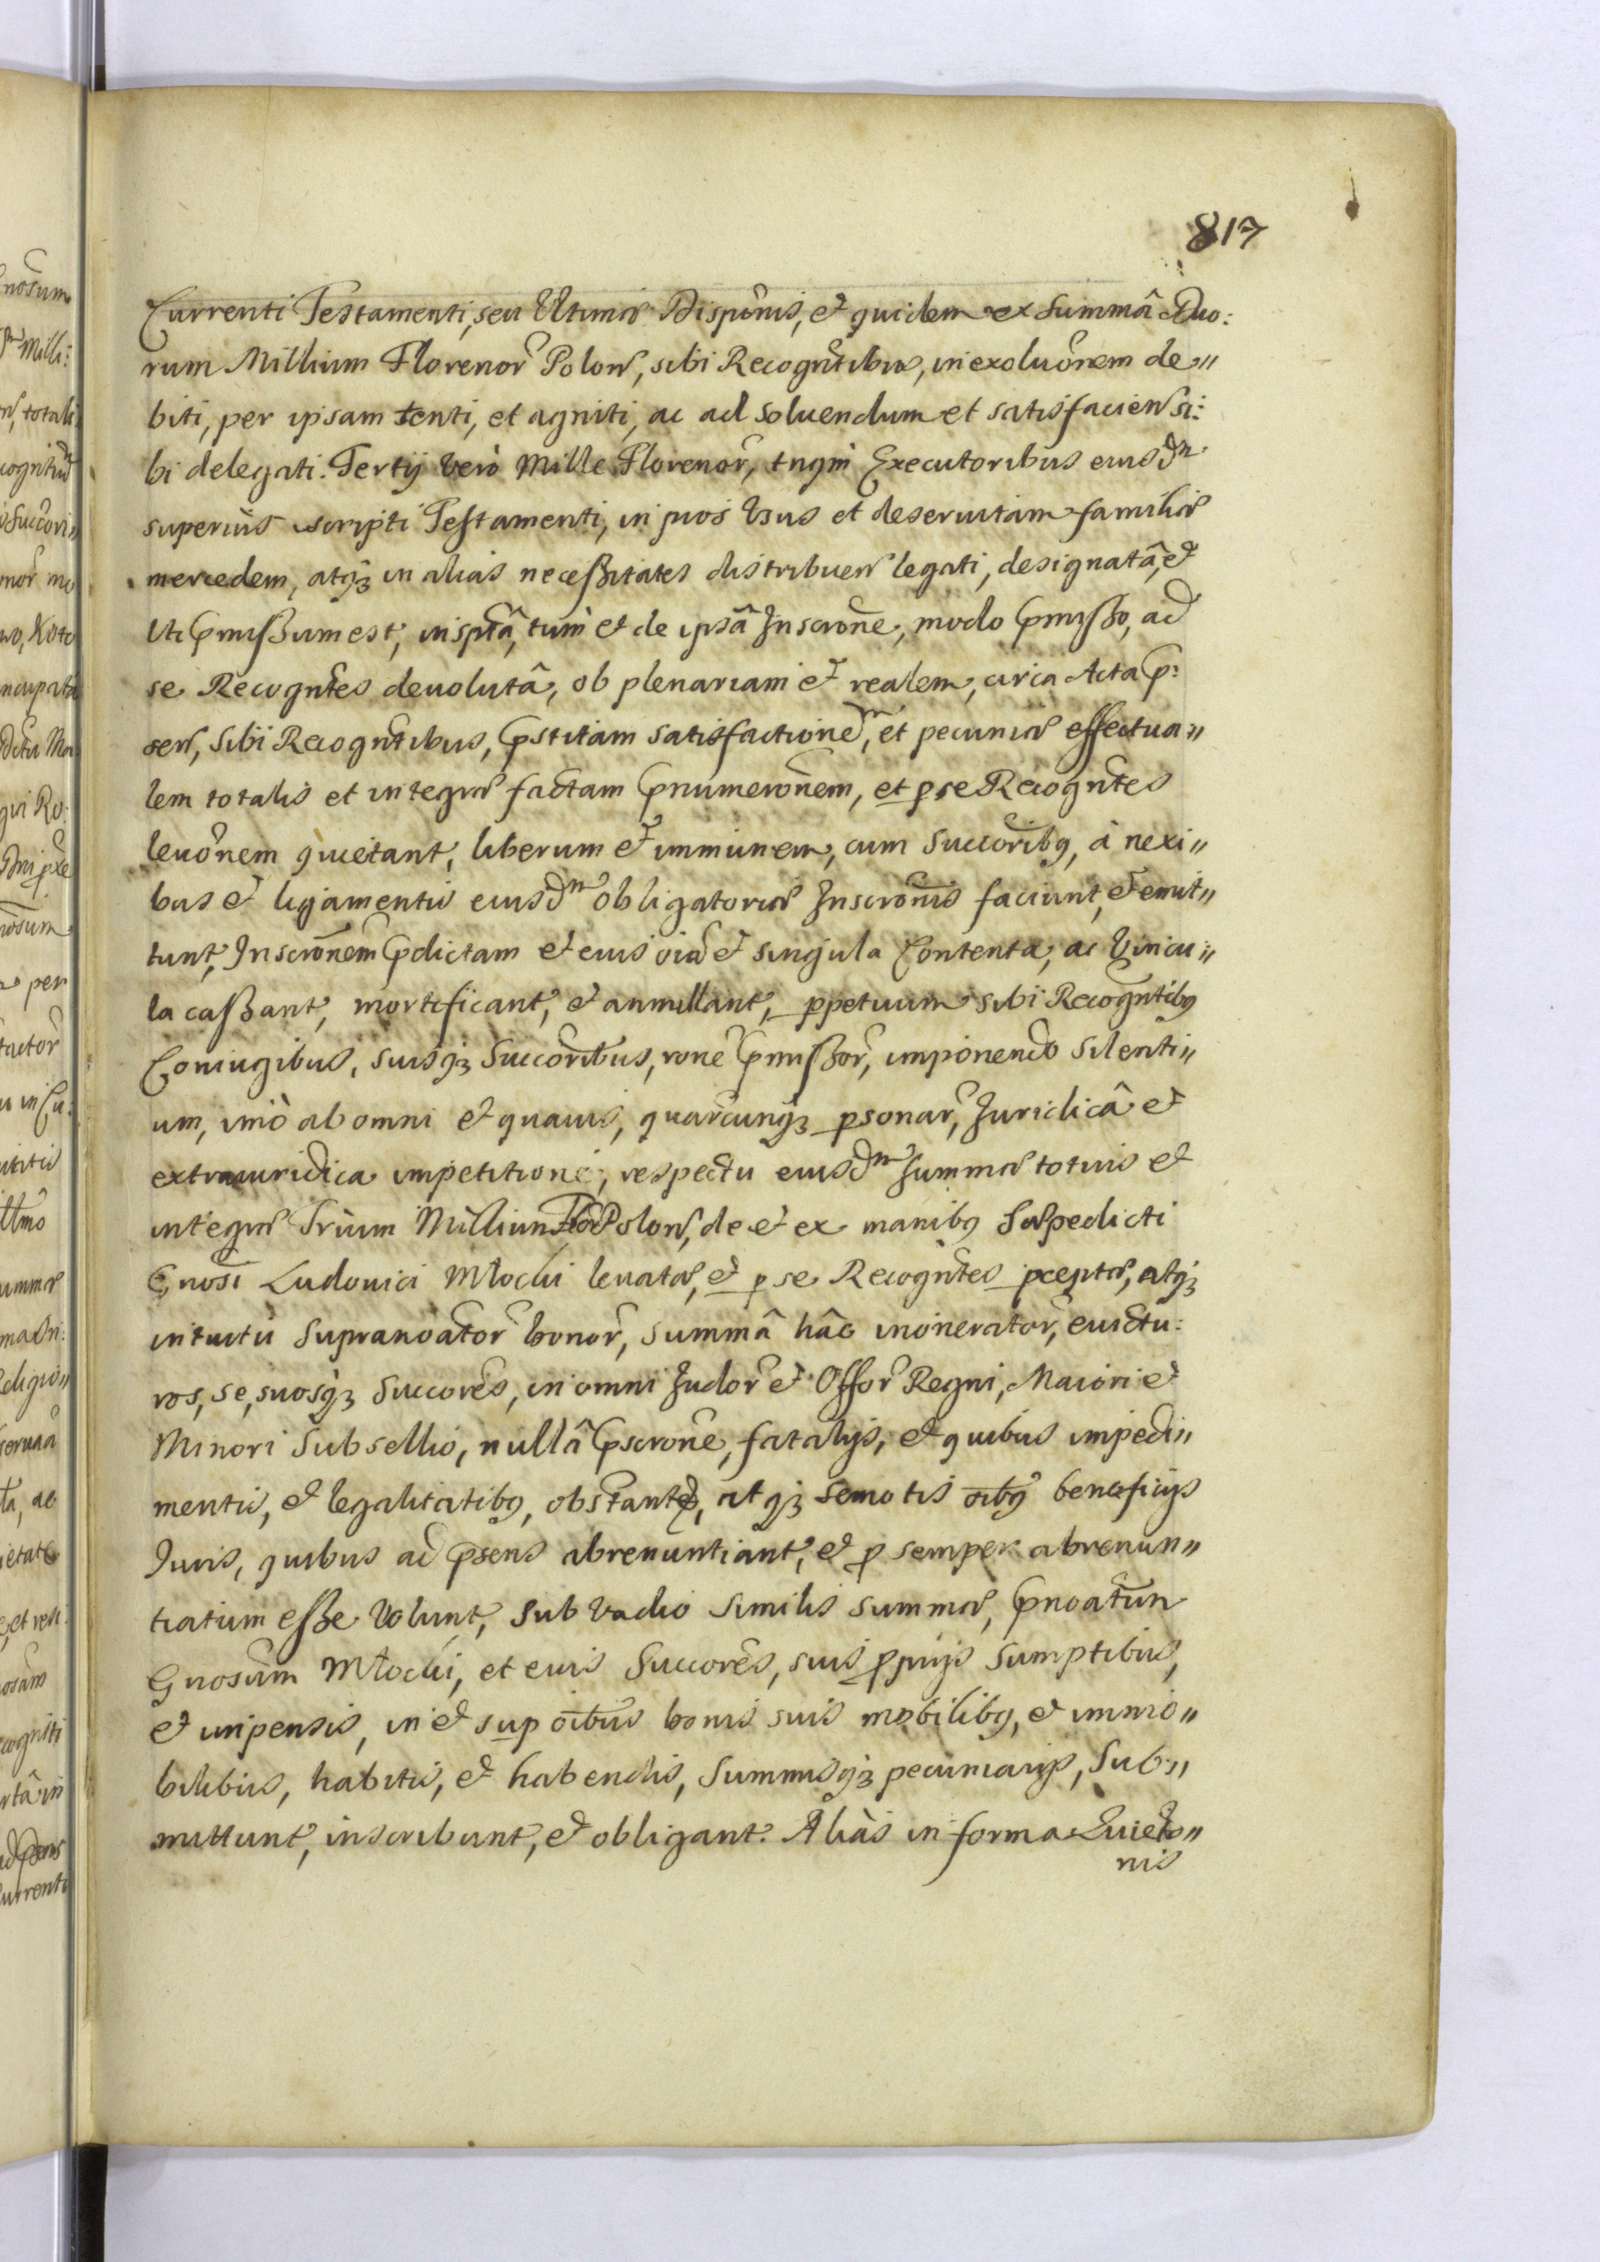 817
Currenti Testamenti, seu Ultimæ Dispõnis, et quidem ex Summâ Duo:
rum Millium Florenor̃ Polon̄, sibi Recogñtibus, in exoluõnem de„
biti, per ipsam tenti, et agniti, ac ad soluendum et satisfacien̄ si:
bi delegati. Tertij verò Mille Florenor̃, tnqm̀ Executoribus eiusdm̃
superiùs scripti Testamenti, in pios Usus et deseruitam familiæ
mercedem, atq₃ in alias neceßitates distribuen̄ legati, designatâ, et
Uti p̃mißum est, insp̃tâ, tùm et de ipsâ Inscrõne, modo p̃mißo, ad
se Recogñtes deuolutâ, ob plenariam et realem, circa Acta p̃:
sen̄, Sibi Recogñtibus, p̃stitam satisfactionem, et pecuniæ effectua„
lem totalis et integræ factam p̃numerõnem, et ꝑ se Recogñtes
leuõnem quietant, liberum et immunem, cum Succorib₉, à nexi„
bus et ligamentis eiusdm̃ obligatoriæ Inscrõnis faciunt, et emit„
tunt, Inscrõnem p̃dictam et eius oĩa et singula Contenta, ac Vincu„
la caßant, mortificant, et annullant, ꝑpetuum sibi Recogñtib₉
Coniugibus, suisq₃ Succoribus, rõne p̃mißor̃, imponendo Silenti„
um, imò ab omni et quauis, quarcunq₃ ꝑsonar̃, Juridicâ et
extraiuridica impetitione, respectu eiusdm̃ Summæ totius et
integræ Trium Millium Flor̃ Polon̄, de et ex manib₉ Sæpedicti
Gñosi Ludouici Młocki leuatæ, et ꝑ se Recogñtes ꝑceptæ, atq₃
intuitu Supranoãtor̃ bonor̃, Summâ hâc inonerator̃, euictu:
ros, se, suosq₃ Succores, in omni Judor̃ et Offor̃ Regni, Maiori et
Minori Subsellio, nullâ p̃scrõne, fatalijs, et quibus impedi„
mentis, et legalitatib₉, obstante, atq₃ semotis oĩb₉ beneficijs
Juris, quibus ad p̃sens abrenuntiant, et ꝓ semper abrenun„
tiatum eße volunt, Sub Vadio Similis Summæ, p̃noãtum
Gñosum Młocki, et eius Succores, suis ꝓprijs Sumptibus,
et impensis, in et suꝑ oĩbus bonis suis mobilib₉, et immo„
bilibus, habitis, et habendis, Summisq₃ pecuniarijs, Sub„
mittunt, inscribunt, et obligant. Aliàs in forma Quieto„
nis